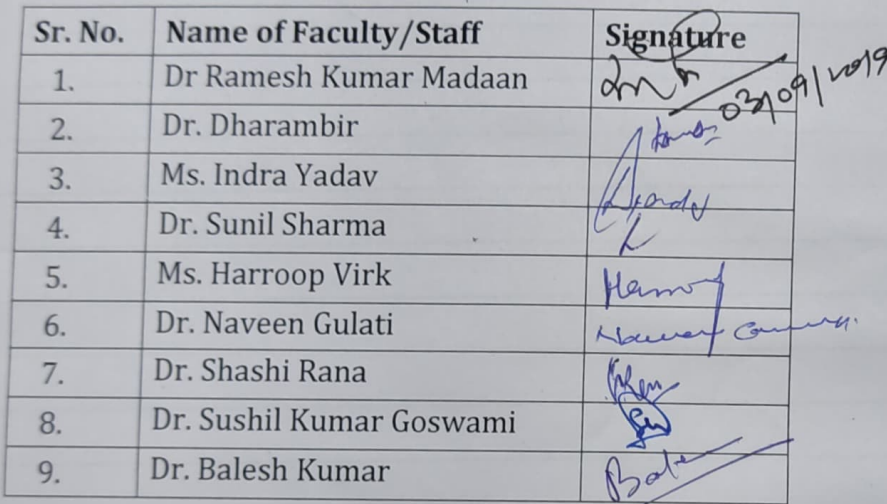 Sr. No. Name of Faculty/Staff Signature
1. Dr Ramesh Kumar Madaan 03/09/2019
2. Dr. Dharambir
3. Ms. Indra Yadav
4. Dr. Sunil Sharma
5. Ms. Harroop Virk
6. Dr. Naveen Gulati
7. Dr. Shashi Rana
8. Dr. Sushil Kumar Goswami
9. Dr. Balesh Kumar